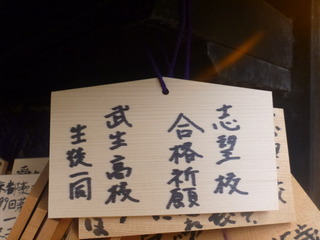 志望校
合格祈願
武生高校
生徒一同